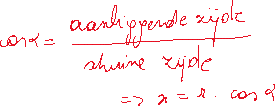 cos α = aanliggende zijde / schuine zijde
=> x = r · cos α